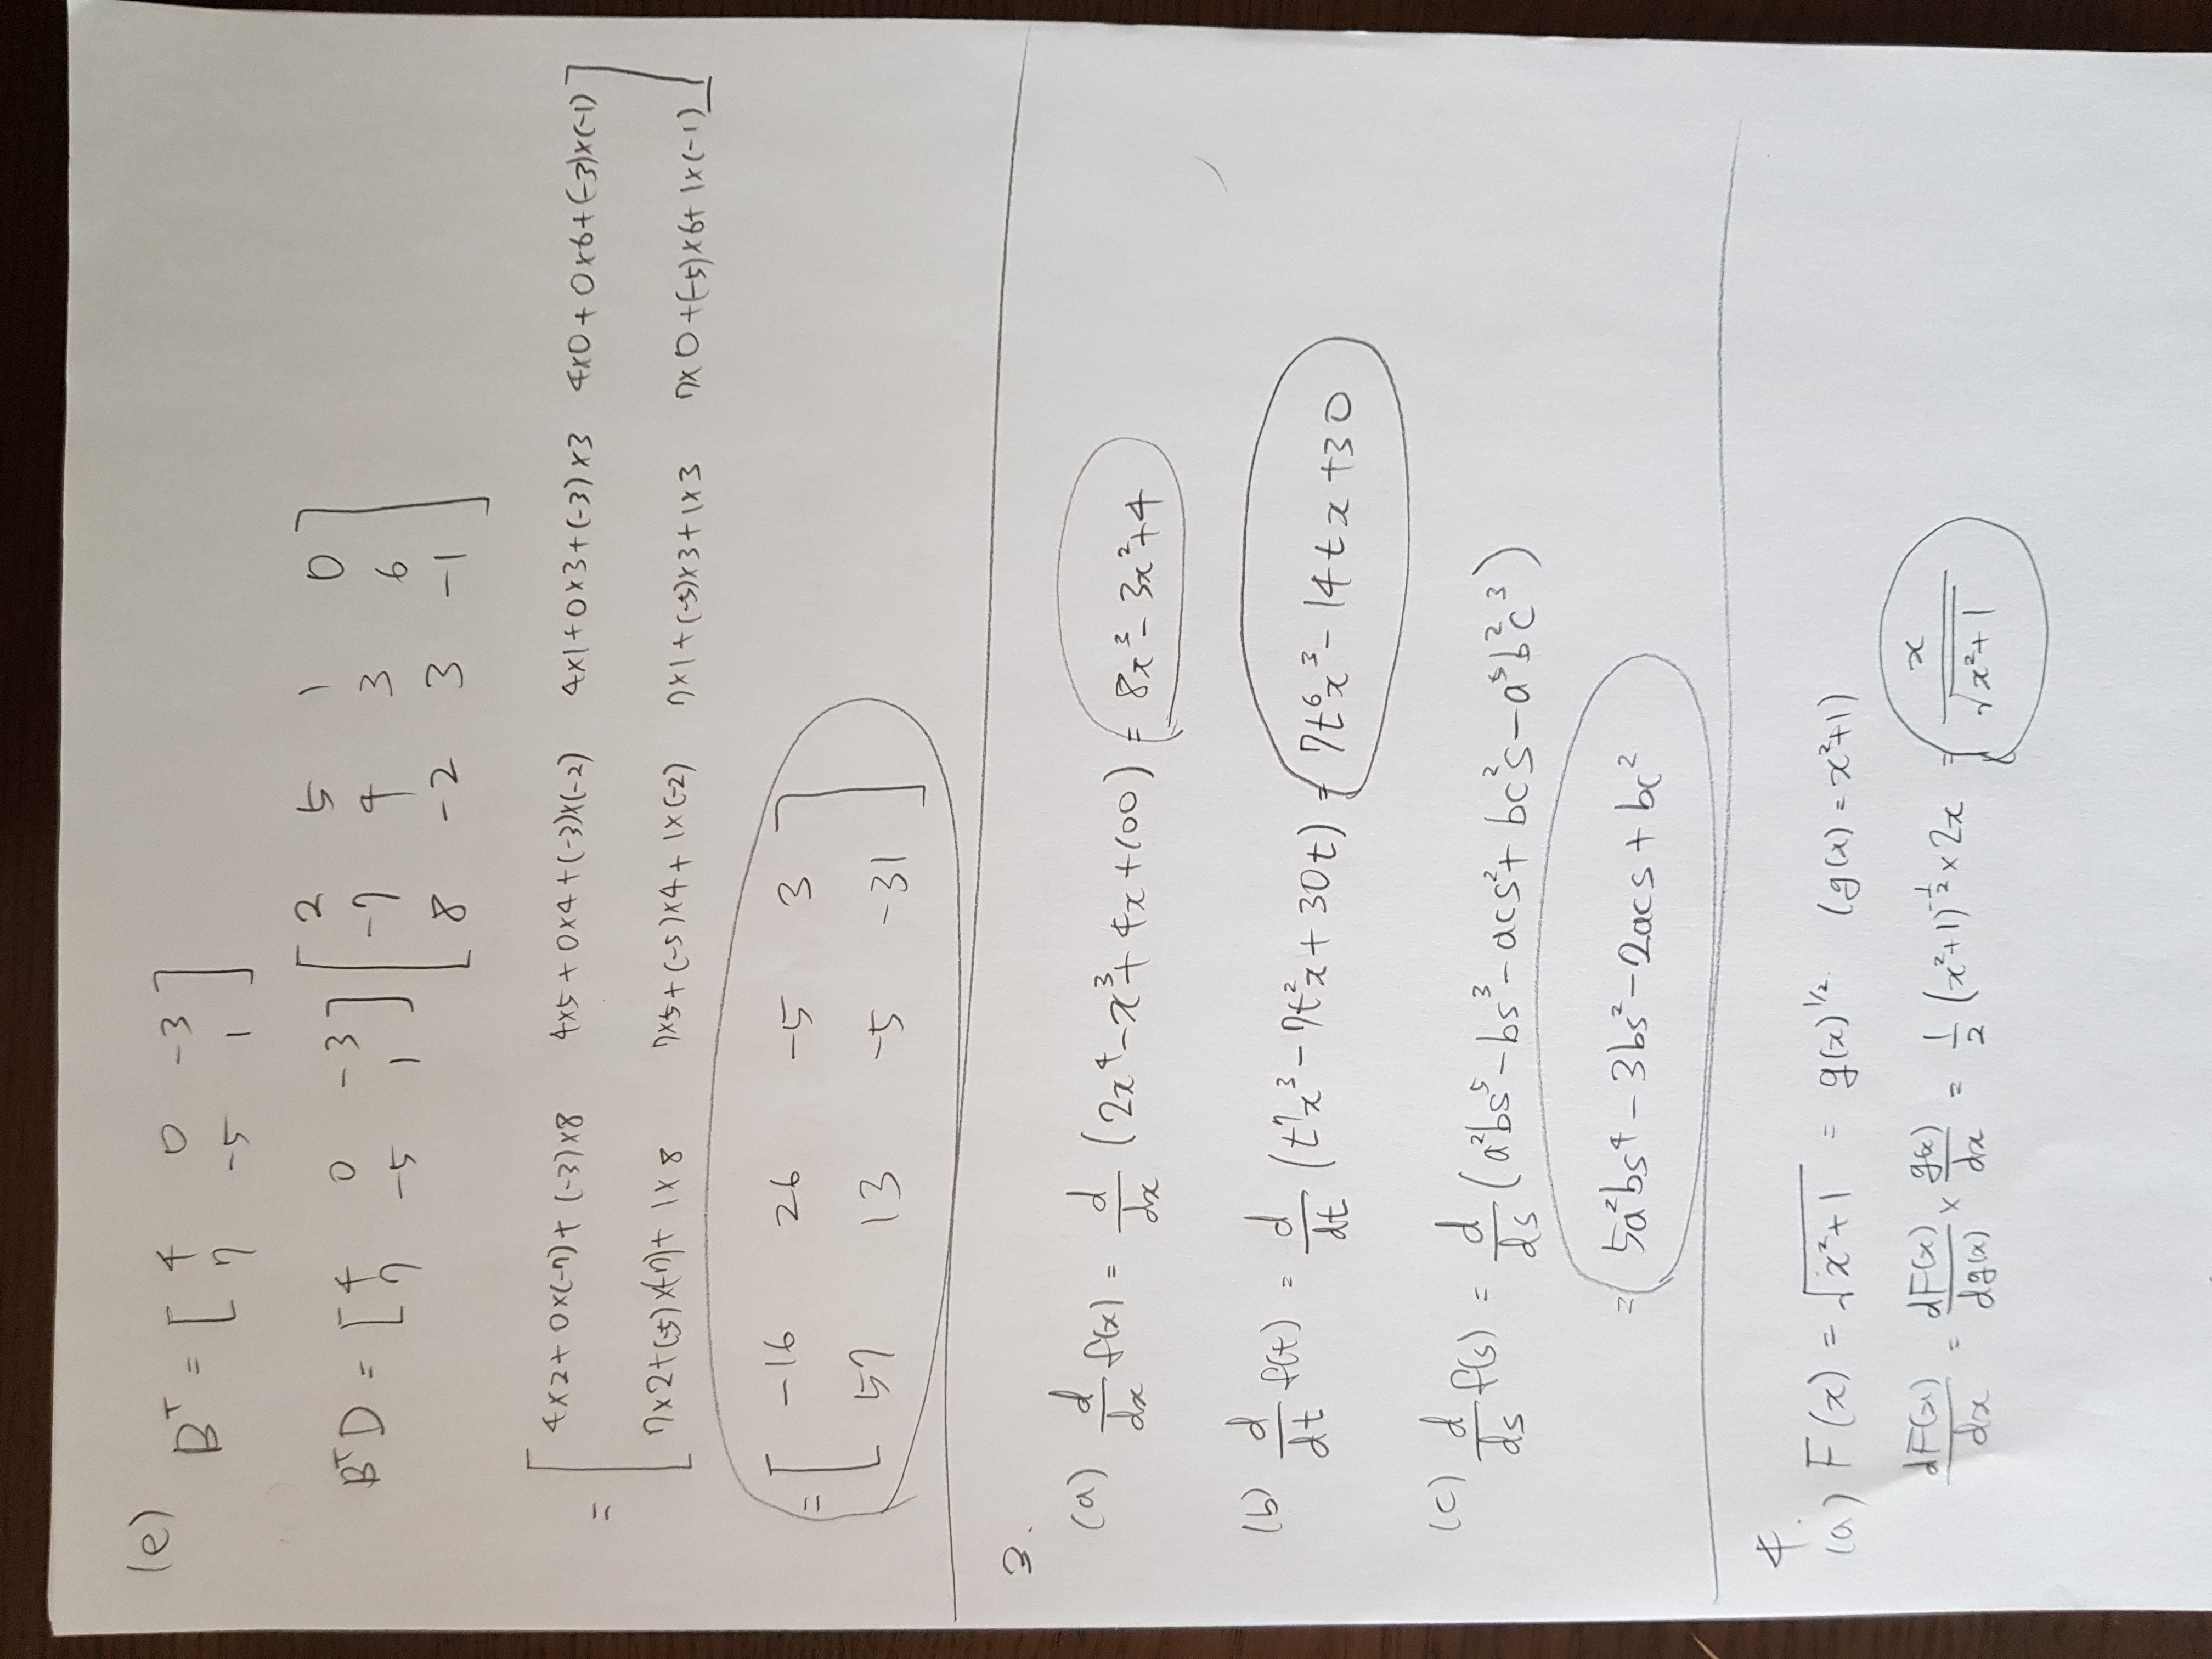 (e)
Bᵀ = [ 4 0 -3
7 -5 1 ]
BᵀD = [ 4 0 -3
7 -5 1 ] [ 2 5 1 0
-7 4 3 6
8 -2 3 -1 ]
= [ 4×2+0×(-7)+(-3)×8 4×5+0×4+(-3)×(-2) 4×1+0×3+(-3)×3 4×0+0×6+(-3)×(-1)
7×2+(-5)×(-7)+1×8 7×5+(-5)×4+1×(-2) 7×1+(-5)×3+1×3 7×0+(-5)×6+1×(-1) ]
= [ -16 26 -5 3
57 13 -5 -31 ]
3.
(a) d/dx f(x) = d/dx (2x⁴-x³+4x+100) = 8x³-3x²+4
(b) d/dt f(t) = d/dt (t⁷x³-7t²x+30t) = 7t⁶x³-14tx+30
(c) d/ds f(s) = d/ds (a²bs⁵-bs³-acs²+bc²s-a⁵b²c³)
= 5a²bs⁴-3bs²-2acs+bc²
4.
(a) F(x) = √(x²+1) = g(x)^1/2. (g(x) = x²+1)
dF(x)/dx = dF(x)/dg(x) × g(x)/dx = 1/2 (x²+1)^-1/2 × 2x = x/√(x²+1)